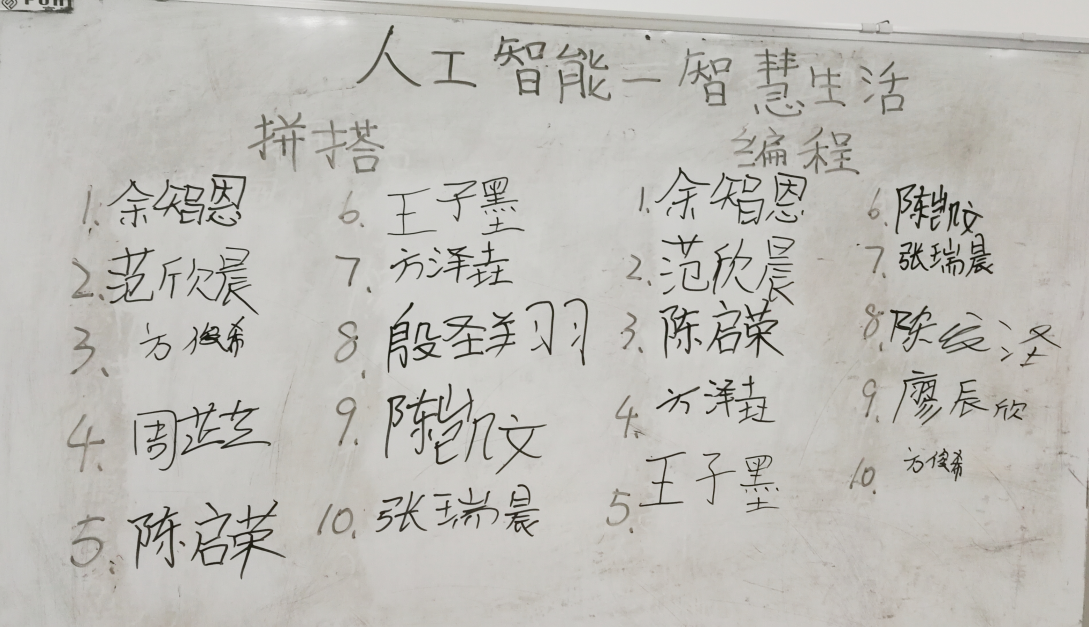 人工智能—智慧生活
拼搭
1. 余智恩
2. 范欣晨
3. 方俊希
4. 周芷
5. 陈启荣
6. 王子墨
7. 方泽垚
8. 殷圣翔羽
9. 陈凯文
10. 张瑞晨
编程
1. 余智恩
2. 范欣晨
3. 陈启荣
4. 方泽垚
5. 王子墨
6. 陈凯文
7. 张瑞晨
8. 陈纹泽
9. 廖辰欣
10. 方俊希